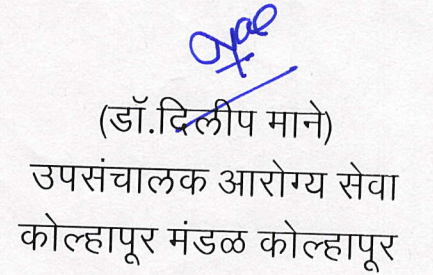 (डॉ.दिलीप माने)
उपसंचालक आरोग्य सेवा
कोल्हापूर मंडळ कोल्हापूर